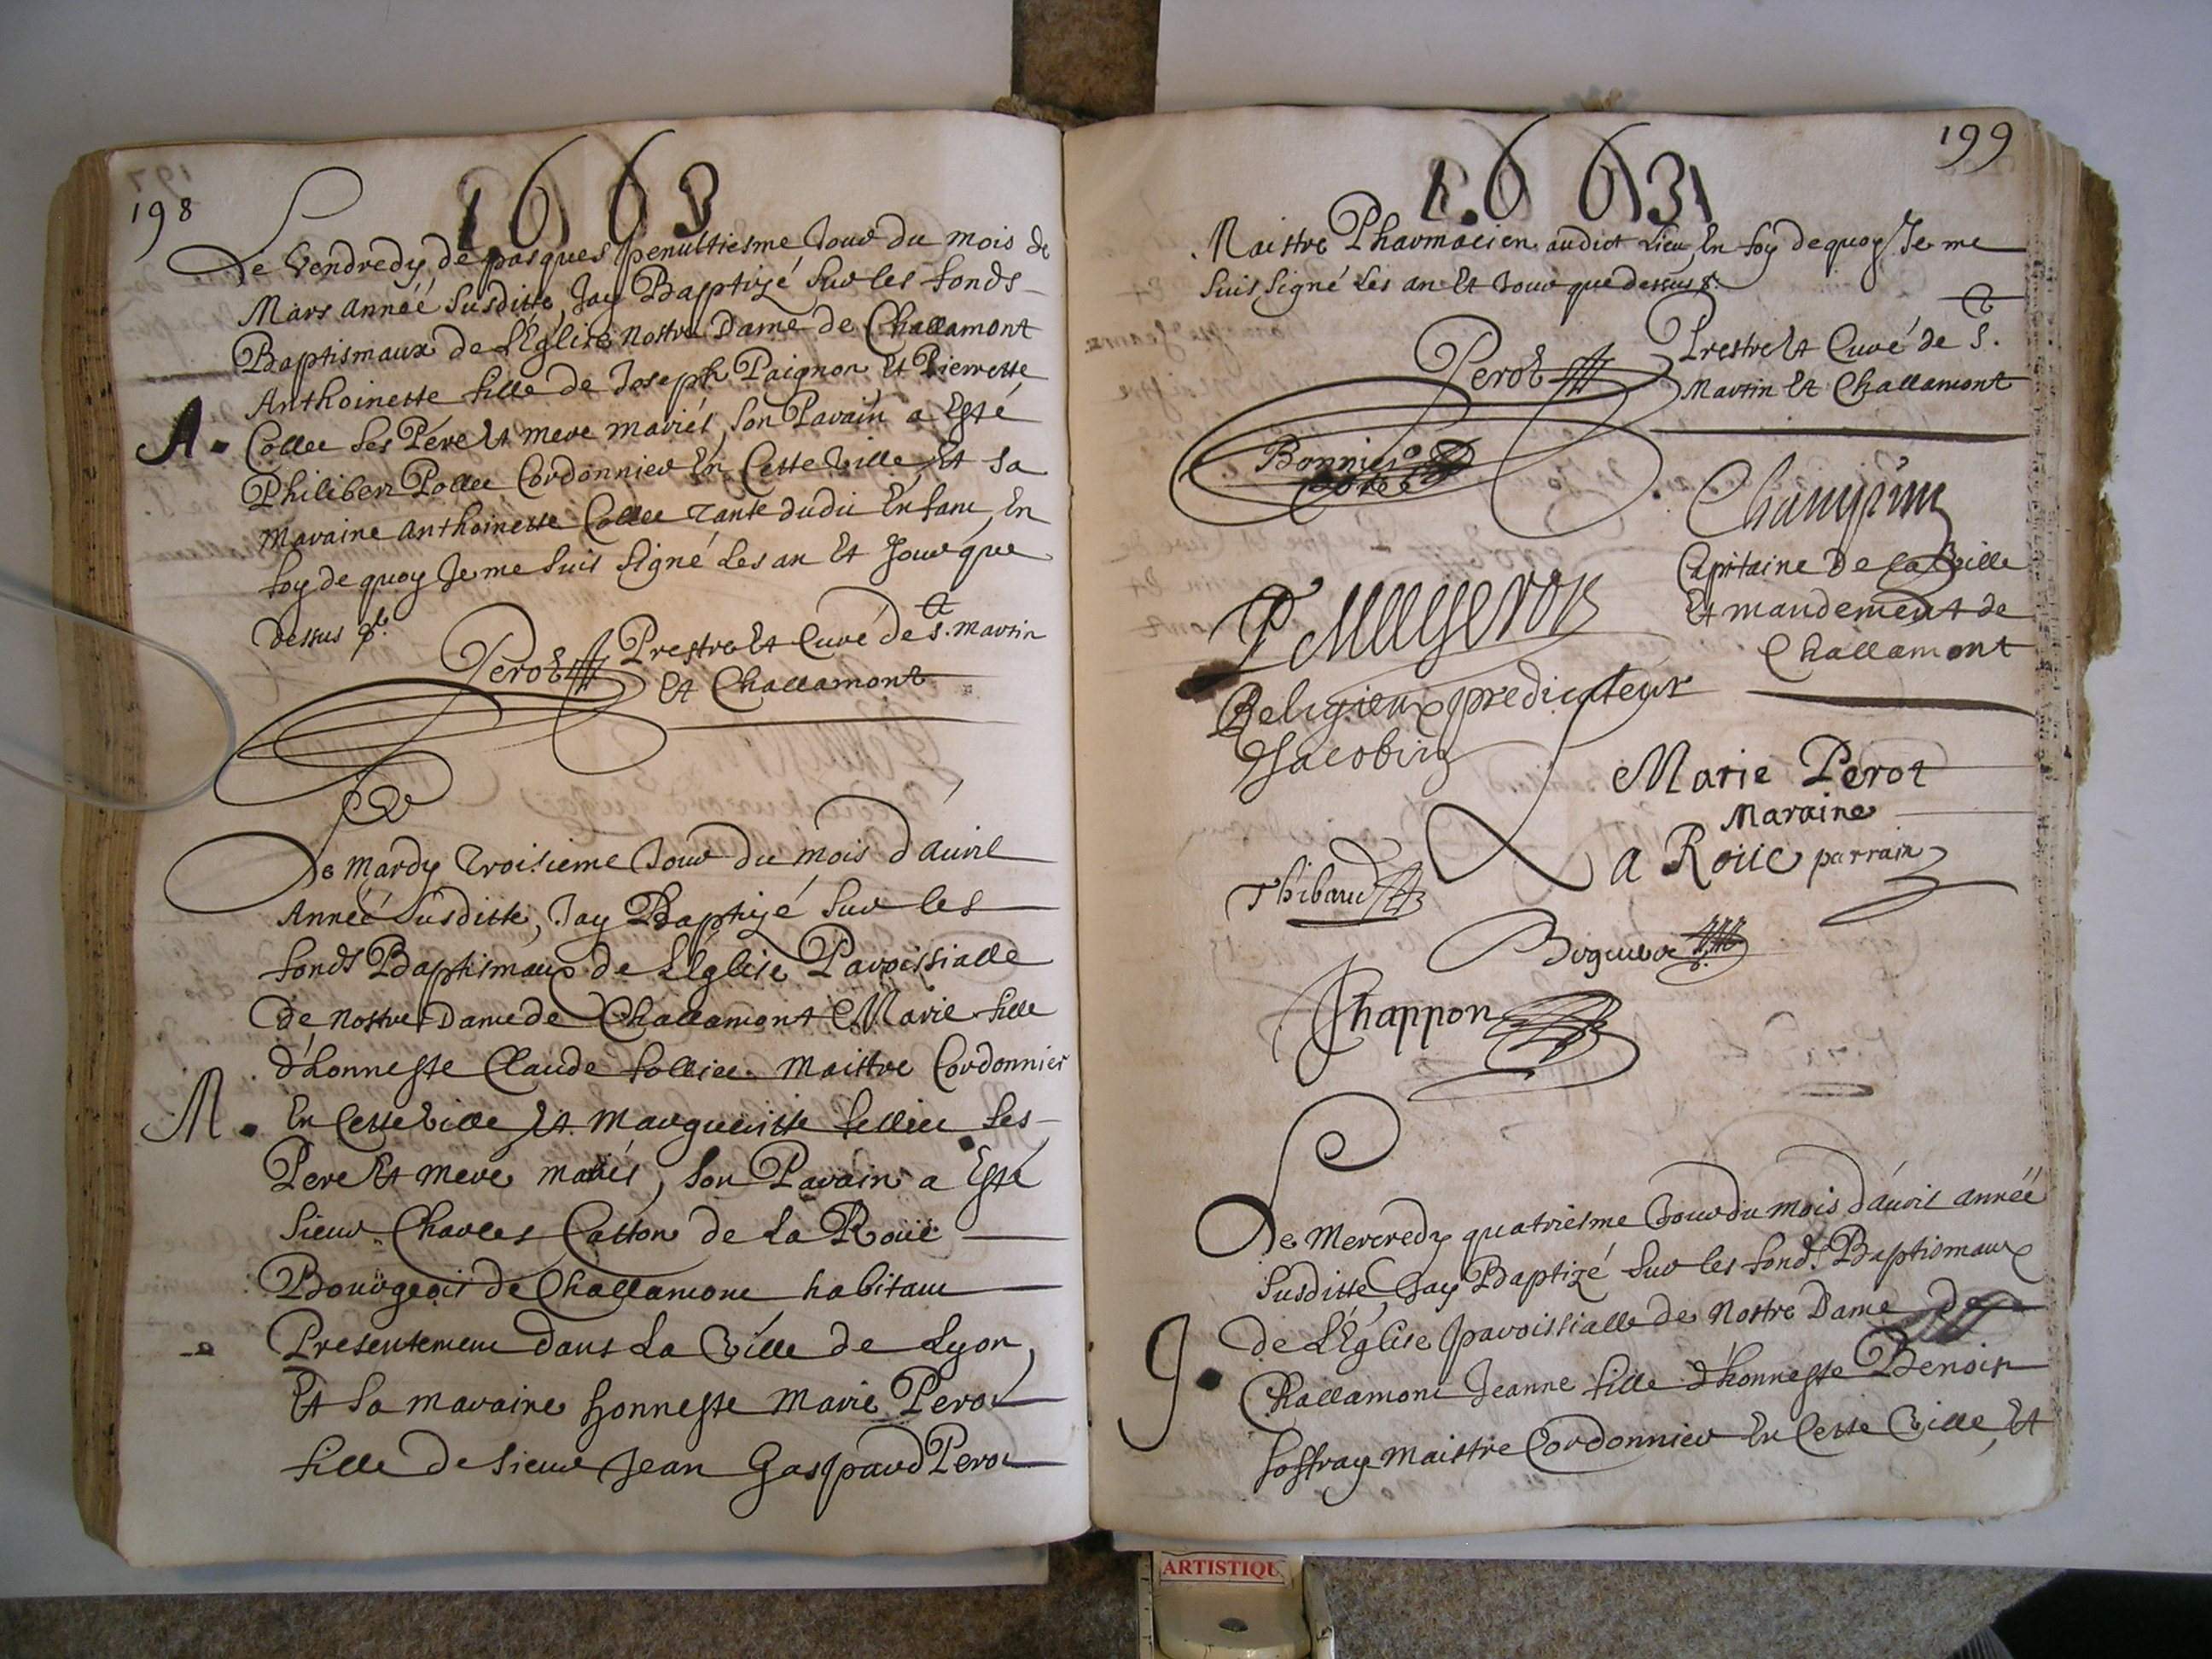 198
1663
Le Vendredy de pasques penultiesme Jour du mois de
Mars année susditte, Jay Baptizé sur les fonds
Baptismaux de L'Église nostre Dame de Challamont
Anthoinette fille de Joseph Paignon Et Pierrette
A. Collet ses Pére Et mere mariés, son Parain a Esté
Philibert Pollet Cordonnier En Cette Ville, Et sa
maraine anthoinette Collet tante dudit Enfant, En
foy de quoy Je me suis signé Les an Et Jour que
dessus
Perot Prestre Et Curé de St. martin
Et Challamont
Le Mardy troisieme Jour du mois d'auril
Année susditte, Jay Baptizé sur les
fonds Baptismaux de L'église Paroissialle
de nostre Dame de Challamont Marie fille
d'honneste Claude follier Maistre Cordonnier
M. En Cette Ville Et Margueritte ses
Pere Et mere mariés, son Parain a Esté
sieur Charles Catton de La Rouë
Bourgeois de Challamont habitant
Presentement dans La Ville de Lyon,
Et sa maraine honneste Marie Perot
fille de sieur Jean Gaspard Perot
199
1663
Maistre Pharmacien audict Lieu, En foy dequoy Je me
suis signé Les an Et Jour que dessus
Perot Prestre Et Curé de St.
Martin Et Challamont
Bonnier
Champin
Capitaine De La Ville
Et mandement de
Challamont
Religieux predicateur
Jacobin
Marie Perot
Maraine
La Roüe parrain
Thibaud
Chappon
Le Mercredy quatriesme Jour du mois d'auril année
susditte, Jay Baptizé sur les fonds Baptismaux
de L'Église paroissialle de Nostre Dame de
J. Challamont Jeanne fille d'honneste Benoist
Joffray Maistre Cordonnier En Cette Ville, Et
ARTISTIQU